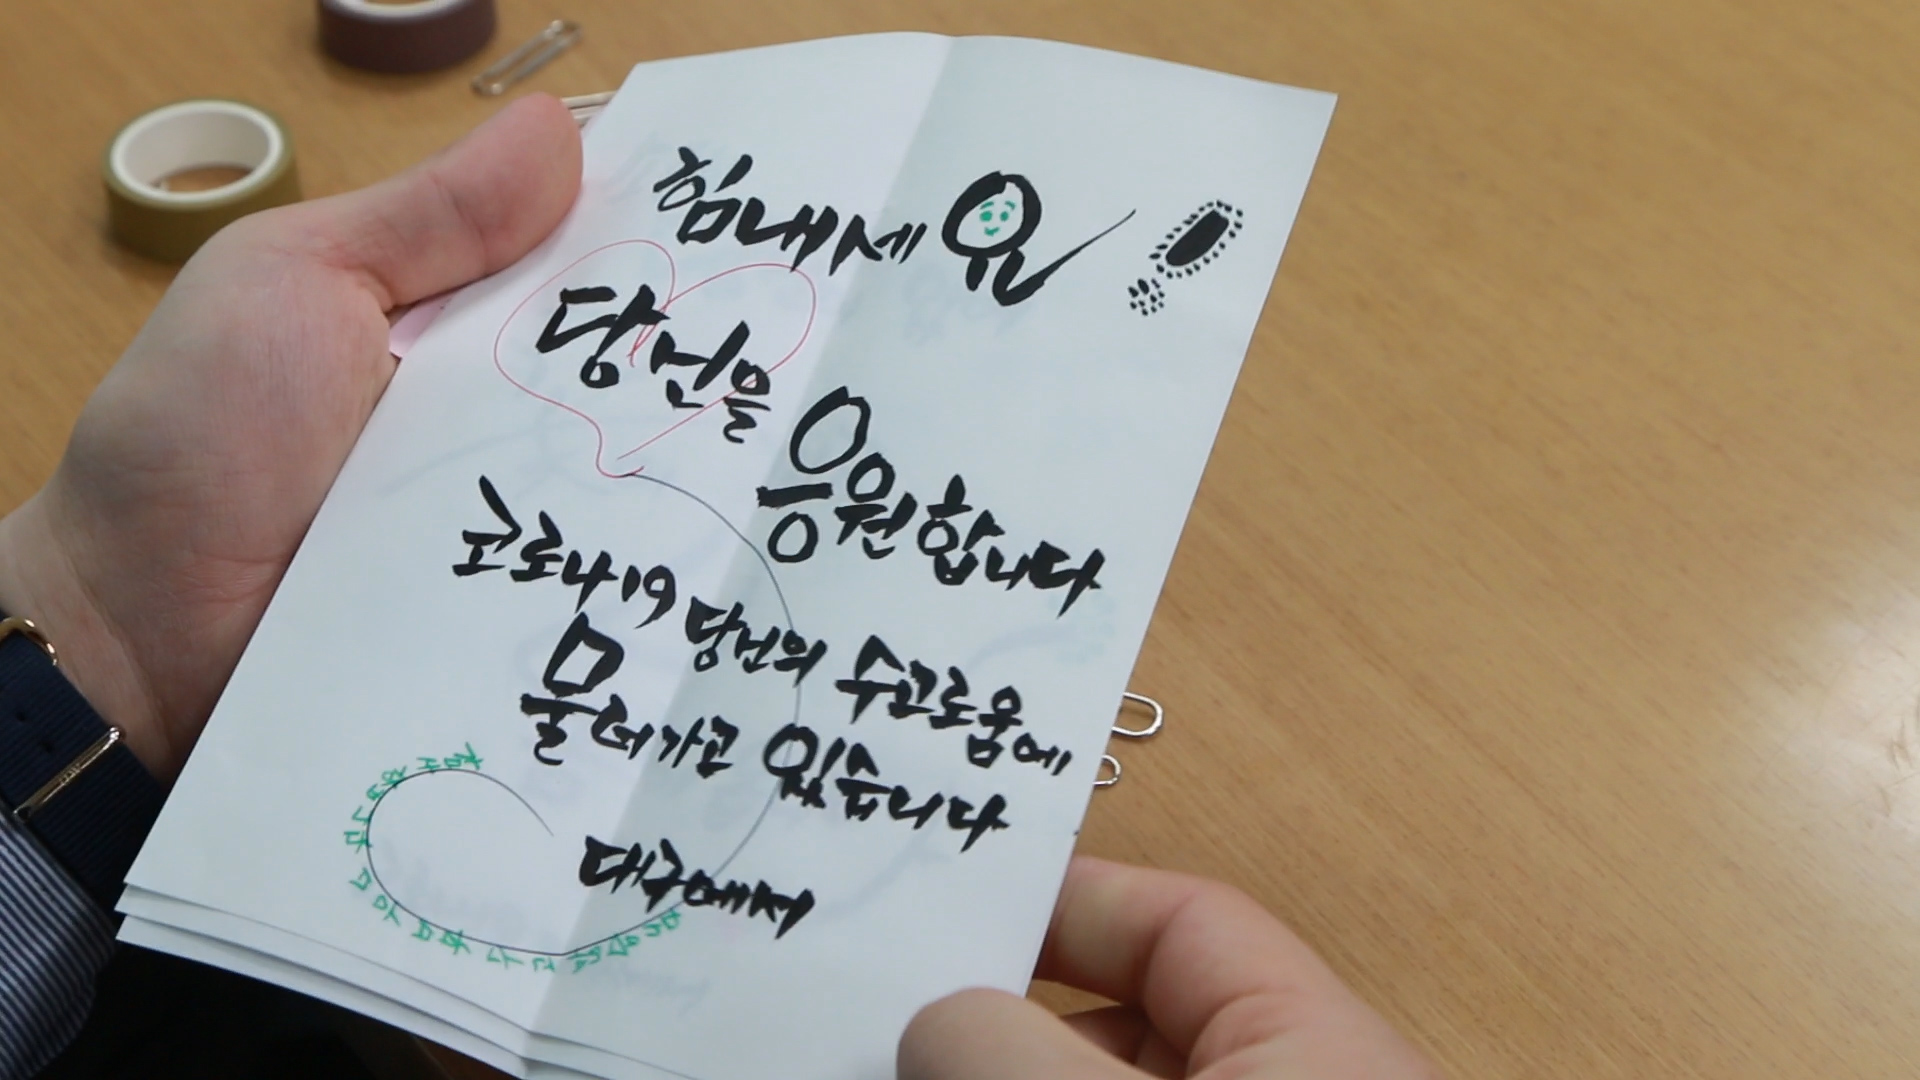 힘내세요
당신을
응원합니다
코로나19 당신의 수고로움에
물러가고 있습니다
대구에서